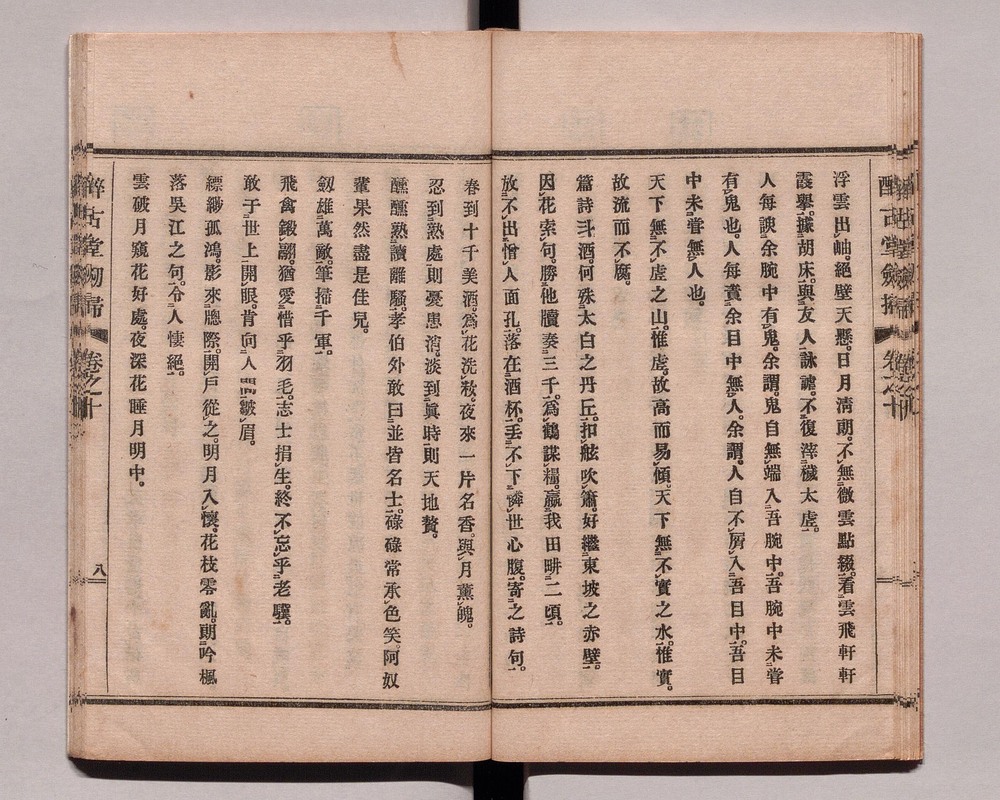 浮雲出岫。絕壁天懸。日月淸朗。不無微雲點綴。看雲飛軒軒
霞擧。據胡床。與友人詠謔。不復滓穢太虛。
人每諛余腕中有鬼。余謂。鬼自無端入吾腕中。吾腕中未嘗
有鬼也。人每責余目中無人。余謂。人自不屑入吾目中。吾目
中未嘗無人也。
天下無不虛之山。惟虛。故高而易傾。天下無不實之水。惟實。
故流而不腐。
放不出憎人面孔。落在酒杯。丟不下憐世心腹。寄之詩句。
因花索句。勝他牘奏三千。爲鶴謀糧。贏我田畊二頃。
篇詩斗酒。何殊太白之丹丘。扣舷吹簫。好繼東坡之赤壁。
春到十千美酒。爲花洗妝。夜來一片名香。與月薰魄。
忍到熟處。則憂患消。淡到眞時。則天地贅。
醺醺熟讀離騷。孝伯外敢曰並皆名士。碌碌常承色笑。阿奴
輩果然盡是佳兒。
劔雄萬敵。筆掃千軍。
飛禽鎩翮。猶愛惜乎羽毛。志士捐生。終不忘乎老驥。
敢于世上開眼。肯向人間皺眉。
縹緲孤鴻。影來牕際。開戶從之。明月入懷。花枝零亂。朗吟楓
落吳江之句。令人悽絕。
雲破月窺花好處。夜深花睡月明中。
醉古堂劔掃
卷之十
八